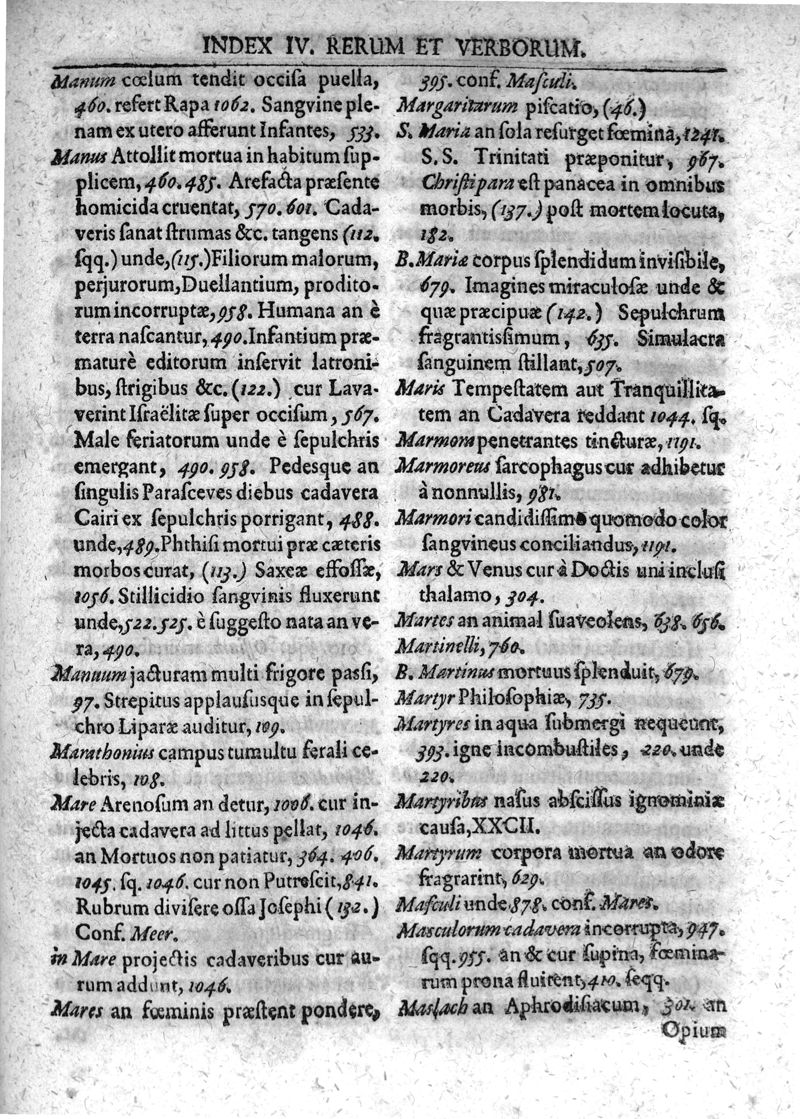 INDEX IV. RERUM ET VERBORUM.
Manum cœlum tendit occiſa puella,
460. refert Rapa 1062. Sangvine ple-
nam ex utero afferunt Infantes, 533.
Manus Attollit mortua in habitum ſup-
plicem, 460. 485. Arefacta præſente
homicida cruentat, 570. 601. Cada-
veris ſanat ſtrumas &c. tangens (112.
ſqq.) unde, (115.) Filiorum malorum,
perjurorum, Duellantium, prodito-
rum incorruptæ, 958. Humana an è
terra naſcantur, 490. Infantium præ-
maturè editorum inſervit latroni-
bus, ſtrigibus &c. (122.) cur Lava-
verint Iſraëlitæ ſuper occiſum, 567.
Male feriatorum unde è ſepulchris
emergant, 490. 958. Pedesque an
ſingulis Paraſceves diebus cadavera
Cairi ex ſepulchris porrigant, 488.
unde, 489. Phthiſi mortui præ cæteris
morbos curat, (113.) Saxeæ effoſſæ,
1056. Stillicidio ſangvinis fluxerunt
unde, 522. 525. è ſuggeſto nata an ve-
ra, 490.
Manuum jacturam multi frigore paſſi,
97. Strepitus applauſusque in ſepul-
chro Liparæ auditur, 109.
Marathonius campus tumultu ferali ce-
lebris, 108.
Mare Arenoſum an detur, 1006. cur in-
jecta cadavera ad littus pellat, 1046.
an Mortuos non patiatur, 364. 406.
1045. ſq. 1046. cur non Putreſcit, 841.
Rubrum diviſere oſſa Joſephi (132.)
Conf. Meer.
in Mare projectis cadaveribus cur au-
rum addunt, 1046.
Mares an fœminis præſtent pondere,
395. conf. Maſculi.
Margaritarum piſcatio, (46.)
S. Maria an ſola reſurget fœmina, 1241.
S.S. Trinitati præponitur, 967.
Chriſtipara eſt panacea in omnibus
morbis, (137.) poſt mortem locuta,
182.
B. Mariæ corpus ſplendidum inviſibile,
679. Imagines miraculoſæ unde &
quæ præcipuæ (142.) Sepulchrum
fragrantiſſimum, 635. Simulacra
ſanguinem ſtillant, 507.
Maris Tempeſtatem aut Tranquillita-
tem an Cadavera reddant 1044. ſq.
Marmora penetrantes tincturæ, 1191.
Marmoreus ſarcophagus cur adhibetur
à nonnullis, 981.
Marmori candidiſſimo quomodo color
ſangvineus conciliandus, 1191.
Mars & Venus cur à Doctis uni incluſi
thalamo, 304.
Martes an animal ſuaveolens, 638. 656.
Martinelli, 760.
B. Martinus mortuus ſplenduit, 679.
Martyr Philoſophiæ, 735.
Martyres in aqua ſubmergi nequeunt,
393. igne incombuſtiles, 220. unde
220.
Martyribus naſus abſciſſus ignominiæ
cauſa, XXCII.
Martyrum corpora mortua an odore
fragrarint, 629.
Maſculi unde 878. conf. Mares.
Maſculorum cadavera incorrupta, 947.
ſqq. 955. an & cur ſupina, fœmina-
rum prona fluitent, 410. ſeqq.
Maslach an Aphrodiſiacum, 301. an
Opium